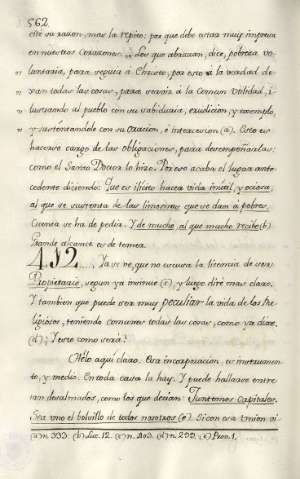 562.
esto su razon, mas la repito: por que debe estar muy impresa
en nuestros Corazones. Los que abrazan, dice, pobreza vo-
luntaria, para seguir a Christo, por esto a la verdad de-
xan todas las cosas, para servir à la Comun Utilidad, i-
lustrando al pueblo con su sabiduria, erudicion, y exemplo,
y sustentandole con su Oracion, è intercesion (a). Esto es
hacerse cargo de las obligaciones, para desempeñarlas:
como el Santo Doctor lo hizo. Por eso acaba el lugar ante-
cedente diciendo: Que es ilicito hacer vida inutil, y ociosa,
al que se sustenta de las limosnas que se dan à pobres.
Cuenta se ha de pedir. Y de mucho al que mucho recibe (b)
Grande alcance es de temer.
432.... Ya se ve, que no escusa la licencia de ser
Propietario, segun ya mostrè (c), y luego dirè mas claro.
Y tambien que puede ser muy peculiar la vida de los Re-
ligiosos, teniendo comunes todas las cosas, como ya dixe,
(d). Y esto como serà?
Digolo aqui claro. Esa incorporacion, es instrumento,
y medio. En toda casa la hay. Y puede hallarse entre
los desalmados, como los que decian: Juntemos Capitales.
Sea uno el bolsillo de todos nosotros (e). Si con esa Union vi-
(a) n. 333. (b) Luc. 12. (c) n. 403. (d) n. 299. (e) Prov. 1.